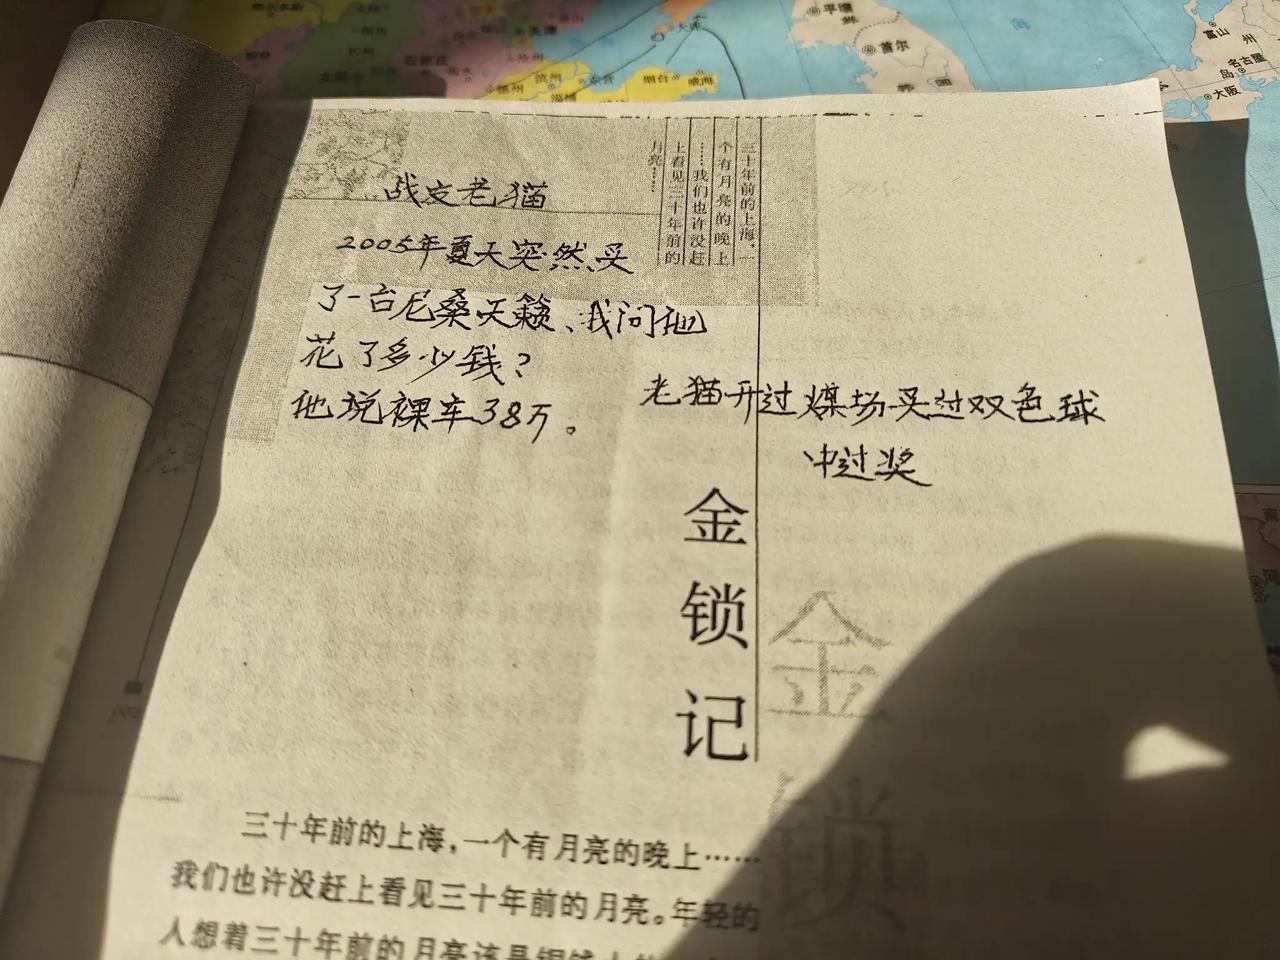 德州
滨州
东营
烟台
威海
大连
平壤
首尔
韩国
海
富山
名古屋
大阪
三十年前的上海，一
个有月亮的晚上
……我们也许没赶
上看见三十年前的
月亮……
战友老猫
2005年夏天突然买
了一台尼桑天籁、我问他
花了多少钱？
他说裸车38万。
老猫开过煤场买过双色球
中过奖
金锁记
金
锁
三十年前的上海，一个有月亮的晚上……
我们也许没赶上看见三十年前的月亮。年轻的
人想着三十年前的月亮该是铜钱